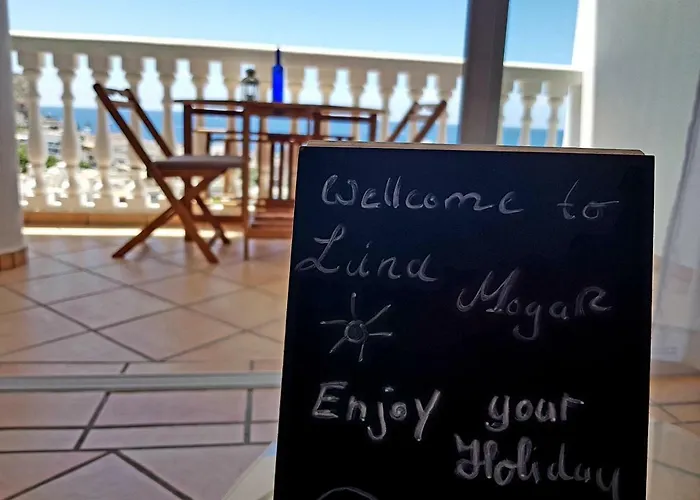 Wellcome to
Lind Mogar
Enjoy your
Holiday